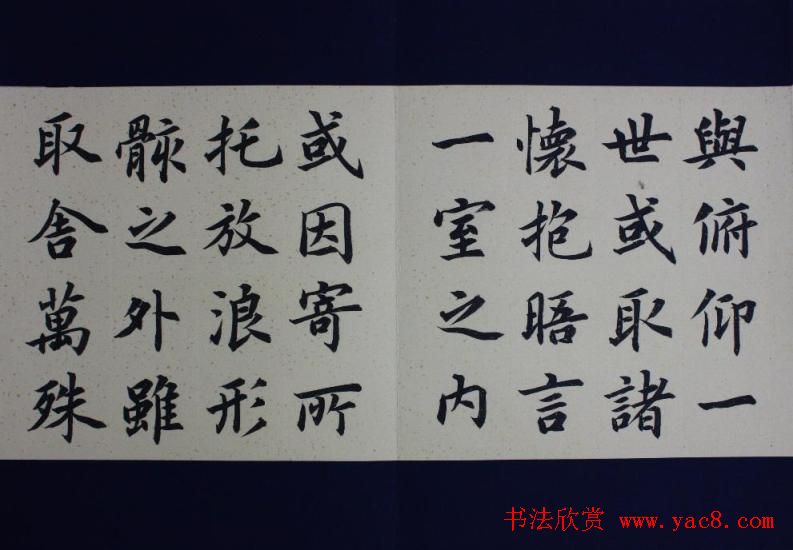 與俯仰一
世或取諸
懷抱晤言
一室之内
或因寄所
托放浪形
骸之外雖
取舍萬殊
书法欣赏 www.yac8.com